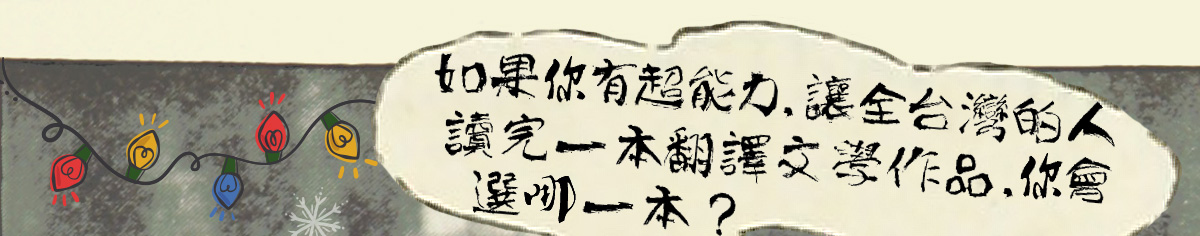 如果你有超能力,讓全台灣的人
讀完一本翻譯文學作品,你會
選哪一本?